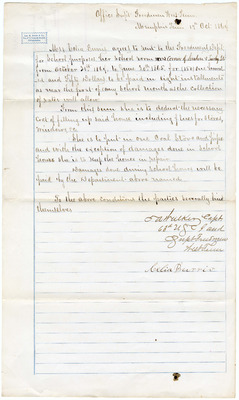 Office Supt. Freedmen West Tenn
Memphis Tenn 15 Oct 1864
Miss Celia Burris agrees to rent to the Freedmen's Dept.
for School purposes her School room
from October 20th 1864 to June 30th 1865 for
and Fifty Dollars to be paid in eight installments
as near the first of each month as the collection
of rates will allow
From this sum she is to deduct the necessary
cost of fitting up said house including
Windows &c.
She is to put in one Coal Stove and pipe
and with the exception of damages done in School
hours she is to keep the house in repair
Damages done during School hours will be
paid by the Department above named
To the above conditions the parties severally bind
themselves
Capt
63d U.S.C.I. and
Supt Freedmen
West Tenn
Celia Burris